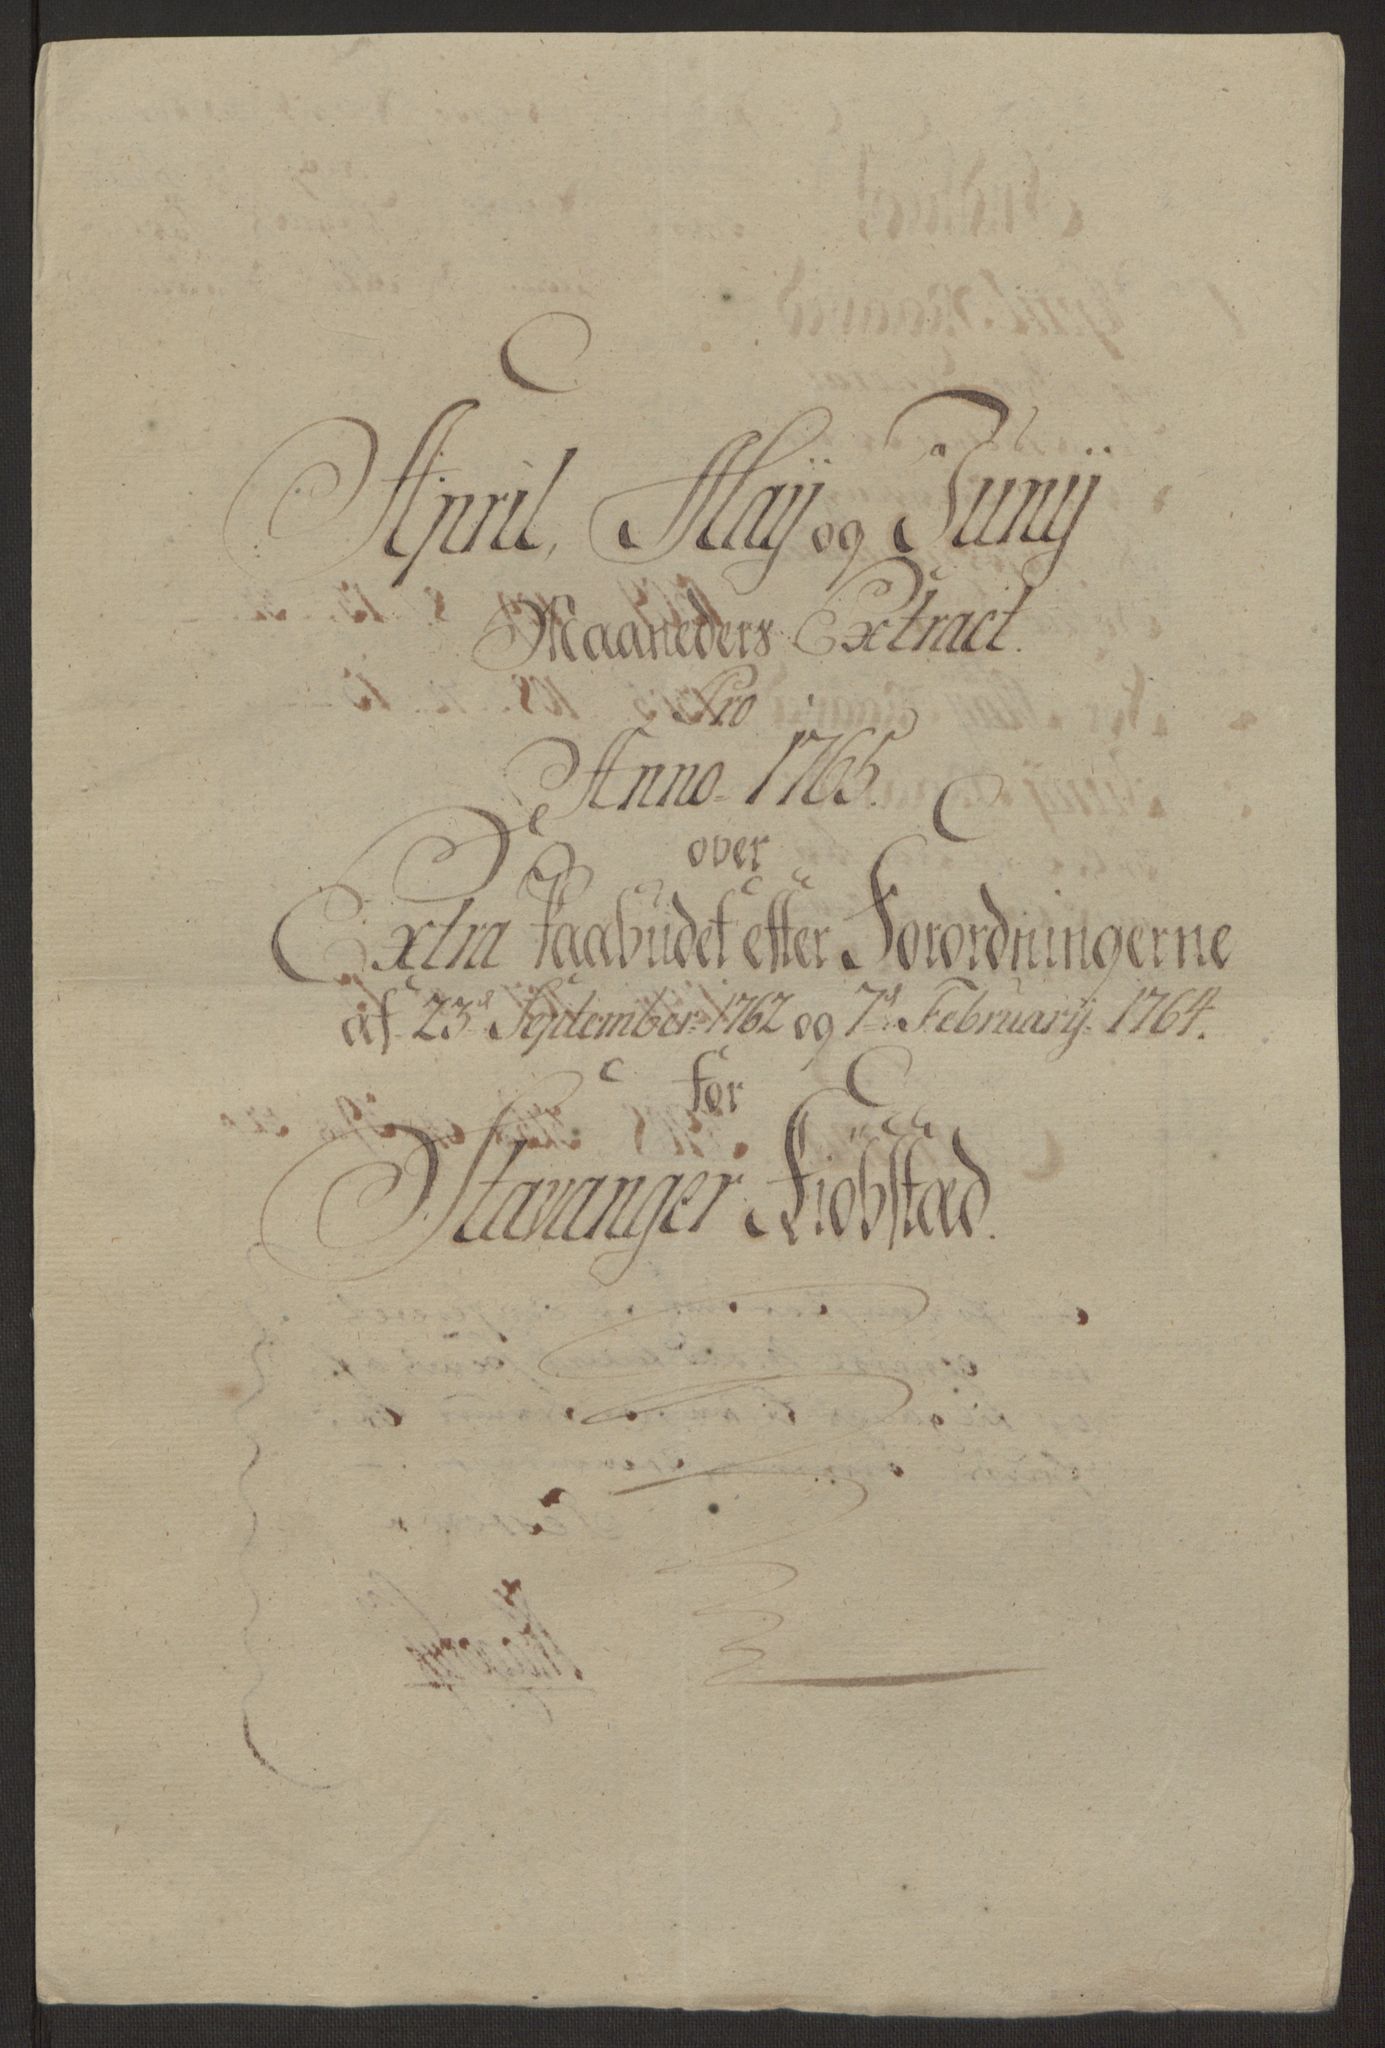 April, Maÿ og Junÿ
Maaneders Extract.
Pro
Anno 1765.
over
Extra Paabudet efter Forordningerne
af 23d September 1762 og 7d Februarÿ 1764.
for
Stavanger Kiøbstæd.